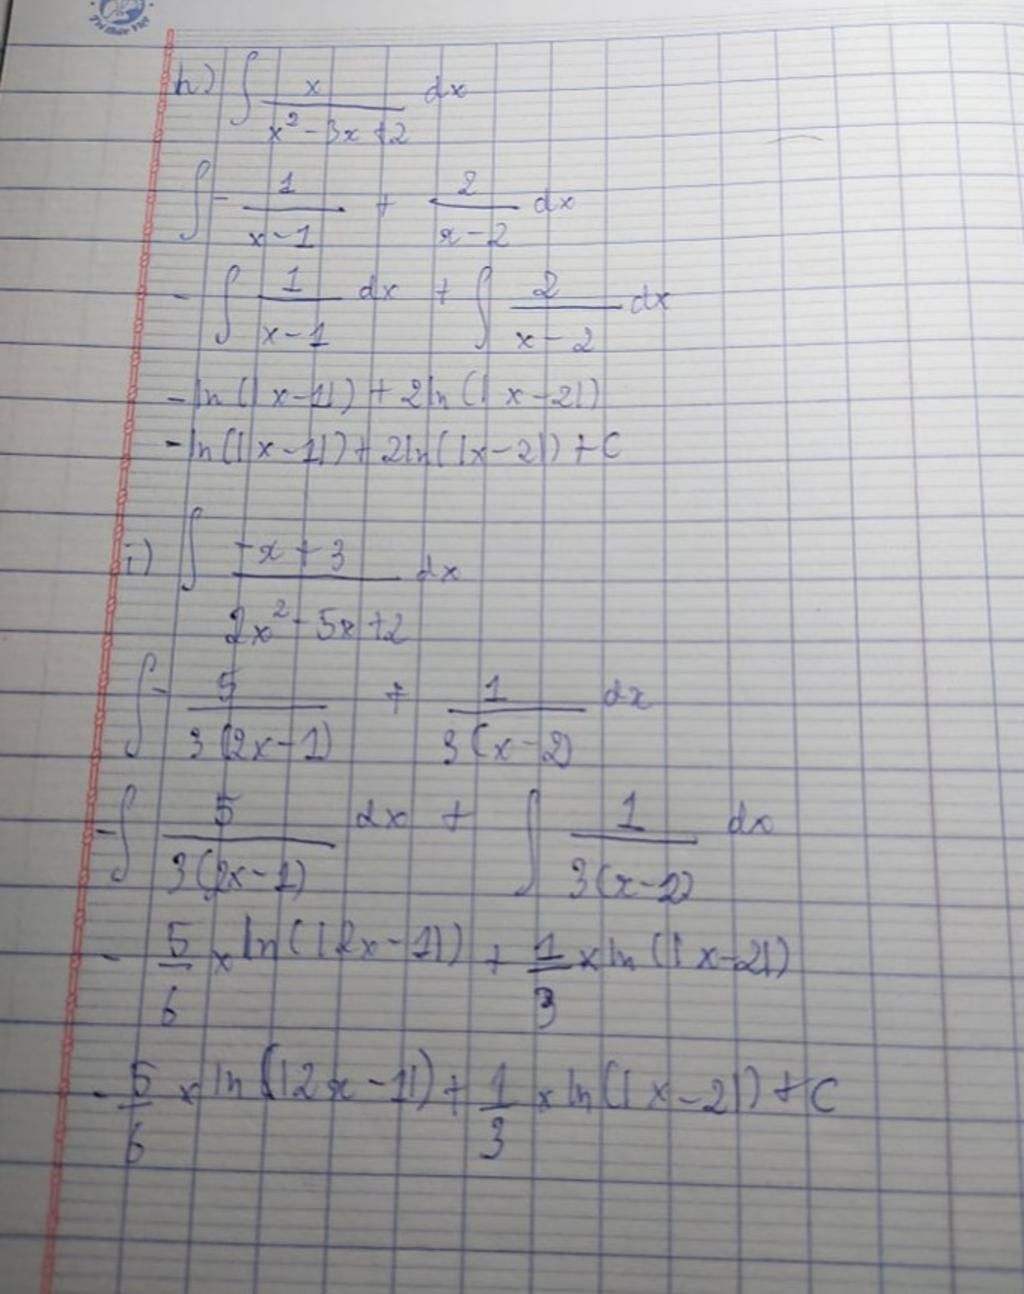 Tri thức Việt
h) ∫ x / (x² - 3x + 2) dx
∫ - 1 / (x - 1) + 2 / (x - 2) dx
- ∫ 1 / (x - 1) dx + ∫ 2 / (x - 2) dx
- ln(|x - 1|) + 2 ln(|x - 2|)
- ln(|x - 1|) + 2 ln(|x - 2|) + C
i) ∫ (-x + 3) / (2x² - 5x + 2) dx
∫ - 5 / 3(2x - 1) + 1 / 3(x - 2) dx
- ∫ 5 / 3(2x - 1) dx + ∫ 1 / 3(x - 2) dx
- 5/6 × ln(|2x - 1|) + 1/3 × ln(|x - 2|)
- 5/6 × ln(|2x - 1|) + 1/3 × ln(|x - 2|) + C